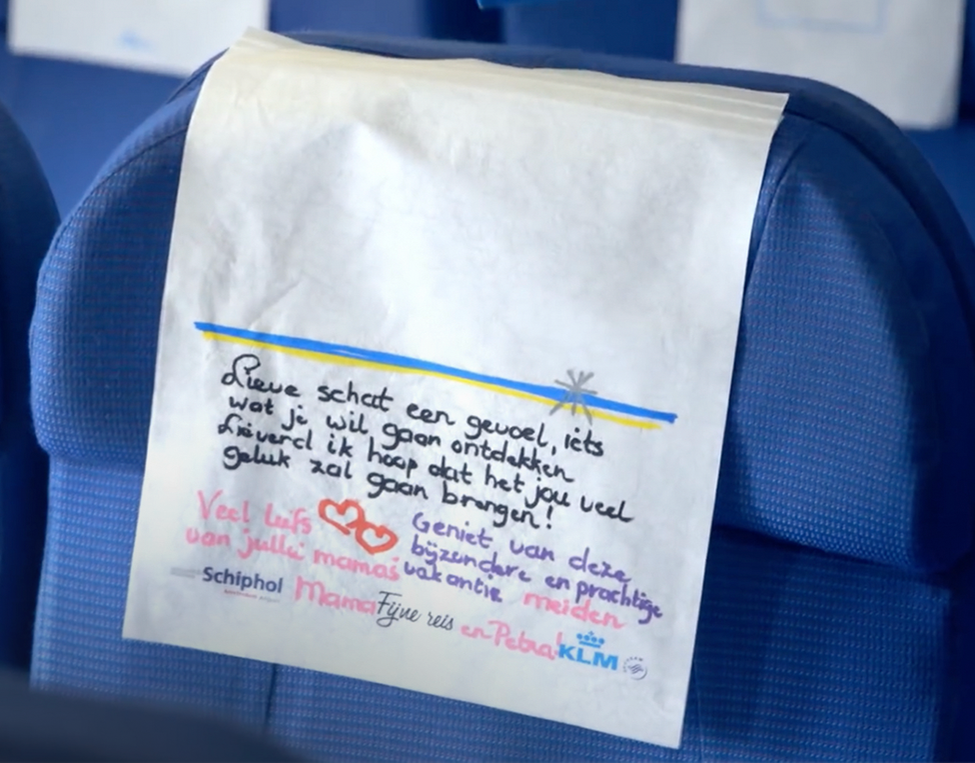 Lieve schat een gevoel, iets
wat je wil gaan ontdekken
Lieverd ik hoop dat het jou veel
geluk zal gaan brengen!
Veel liefs
van jullie mamas
Geniet van deze
bijzondere en prachtige
vakantie meiden
Schiphol
Mama
Fijne reis
en Petra
KLM